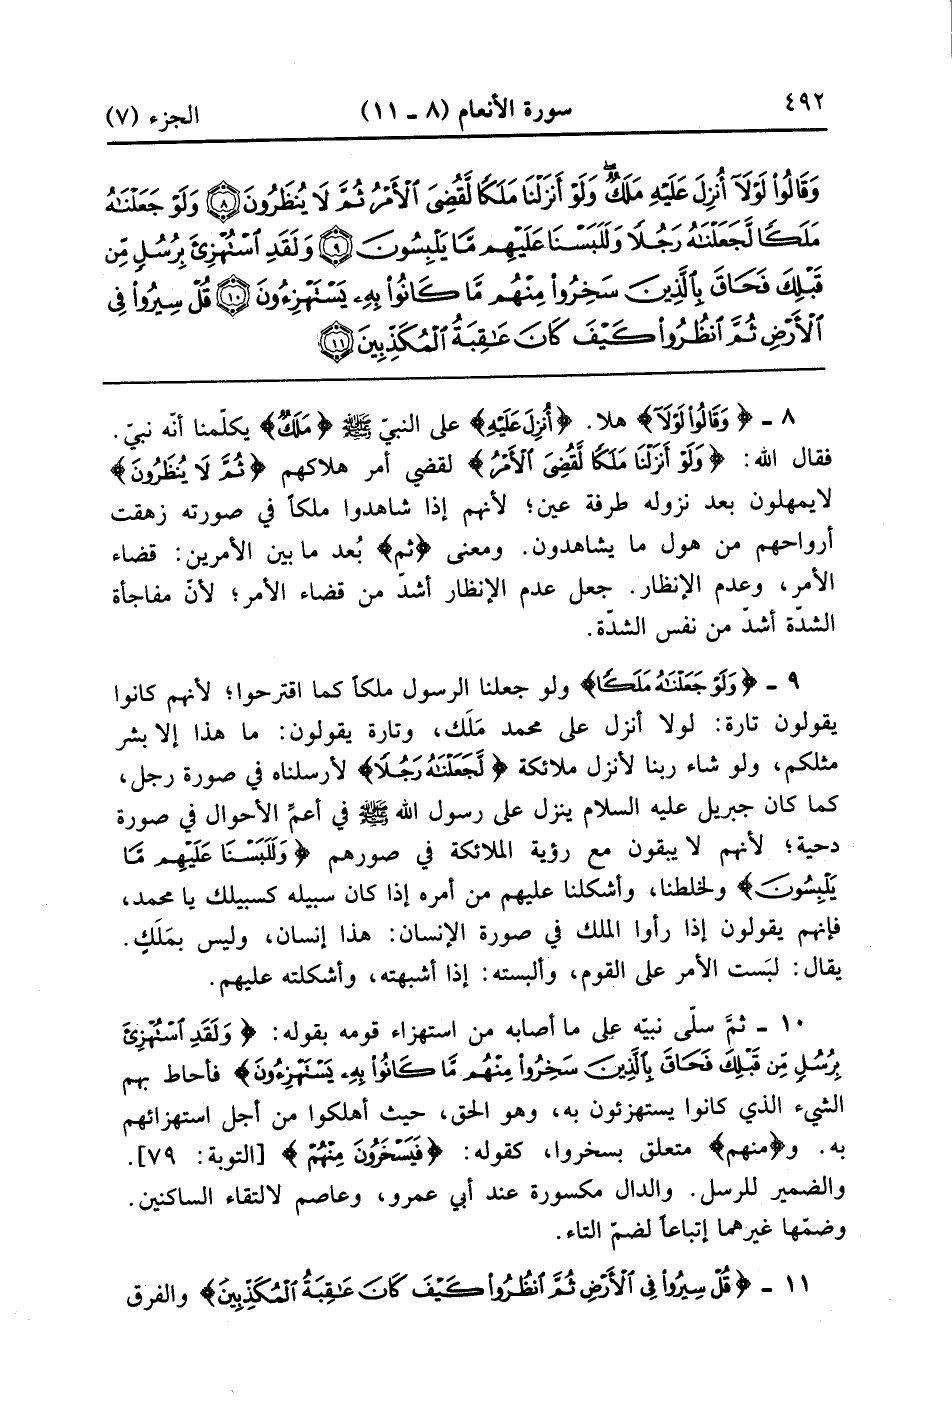 ٤٩٢ سورة الأنعام (٨ ـ ١١) الجزء (٧)
وَقَالُوا۟ لَوْلَآ أُنزِلَ عَلَيْهِ مَلَكٌ ۖ وَلَوْ أَنزَلْنَا مَلَكًا لَّقُضِىَ ٱلْأَمْرُ ثُمَّ لَا يُنظَرُونَ ﴿٨﴾ وَلَوْ جَعَلْنَٰهُ
مَلَكًا لَّجَعَلْنَٰهُ رَجُلًا وَلَلَبَسْنَا عَلَيْهِم مَّا يَلْبِسُونَ ﴿٩﴾ وَلَقَدِ ٱسْتُهْزِئَ بِرُسُلٍ مِّن
قَبْلِكَ فَحَاقَ بِٱلَّذِينَ سَخِرُوا۟ مِنْهُم مَّا كَانُوا۟ بِهِۦ يَسْتَهْزِءُونَ ﴿١٠﴾ قُلْ سِيرُوا۟ فِى
ٱلْأَرْضِ ثُمَّ ٱنظُرُوا۟ كَيْفَ كَانَ عَٰقِبَةُ ٱلْمُكَذِّبِينَ ﴿١١﴾
٨ ـ ﴿وَقَالُوا۟ لَوْلَآ﴾ هلا. ﴿أُنزِلَ عَلَيْهِ﴾ على النبيّ ﷺ ﴿مَلَكٌ﴾ يكلّمنا أنه نبيّ.
فقال الله: ﴿وَلَوْ أَنزَلْنَا مَلَكًا لَّقُضِىَ ٱلْأَمْرُ﴾ لقضي أمر هلاكهم ﴿ثُمَّ لَا يُنظَرُونَ﴾
لايمهلون بعد نزوله طرفة عين؛ لأنهم إذا شاهدوا ملكاً في صورته زهقت
أرواحهم من هول ما يشاهدون. ومعنى ﴿ثم﴾ بُعد ما بين الأمرين: قضاء
الأمر، وعدم الإنظار. جعل عدم الإنظار أشدّ من قضاء الأمر؛ لأنّ مفاجأة
الشدّة أشدّ من نفس الشدّة.
٩ ـ ﴿وَلَوْ جَعَلْنَٰهُ مَلَكًا﴾ ولو جعلنا الرسول ملكاً كما اقترحوا؛ لأنهم كانوا
يقولون تارة: لولا أنزل على محمد مَلَك، وتارة يقولون: ما هذا إلا بشر
مثلكم، ولو شاء ربنا لأنزل ملائكة ﴿لَّجَعَلْنَٰهُ رَجُلًا﴾ لأرسلناه في صورة رجل،
كما كان جبريل عليه السلام ينزل على رسول الله ﷺ في أعمِّ الأحوال في صورة
دحية؛ لأنهم لا يبقون مع رؤية الملائكة في صورهم ﴿وَلَلَبَسْنَا عَلَيْهِم مَّا
يَلْبِسُونَ﴾ ولخلطنا، وأشكلنا عليهم من أمره إذا كان سبيله كسبيلك يا محمد،
فإنهم يقولون إذا رأوا الملك في صورة الإنسان: هذا إنسان، وليس بمَلَكٍ.
يقال: لبَست الأمر على القوم، وألبسته: إذا أشبهته، وأشكلته عليهم.
١٠ ـ ثمَّ سلّى نبيّه على ما أصابه من استهزاء قومه بقوله: ﴿وَلَقَدِ ٱسْتُهْزِئَ
بِرُسُلٍ مِّن قَبْلِكَ فَحَاقَ بِٱلَّذِينَ سَخِرُوا۟ مِنْهُم مَّا كَانُوا۟ بِهِۦ يَسْتَهْزِءُونَ﴾ فأحاط بهم
الشيء الذي كانوا يستهزئون به، وهو الحق، حيث أهلكوا من أجل استهزائهم
به. و﴿منهم﴾ متعلق بسخروا، كقوله: ﴿فَيَسْخَرُونَ مِنْهُمْ﴾ [التوبة: ٧٩].
والضمير للرسل. والدال مكسورة عند أبي عمرو، وعاصم لالتقاء الساكنين.
وضمّها غيرهما إتباعاً لضمّ التاء.
١١ ـ ﴿قُلْ سِيرُوا۟ فِى ٱلْأَرْضِ ثُمَّ ٱنظُرُوا۟ كَيْفَ كَانَ عَٰقِبَةُ ٱلْمُكَذِّبِينَ﴾ والفرق